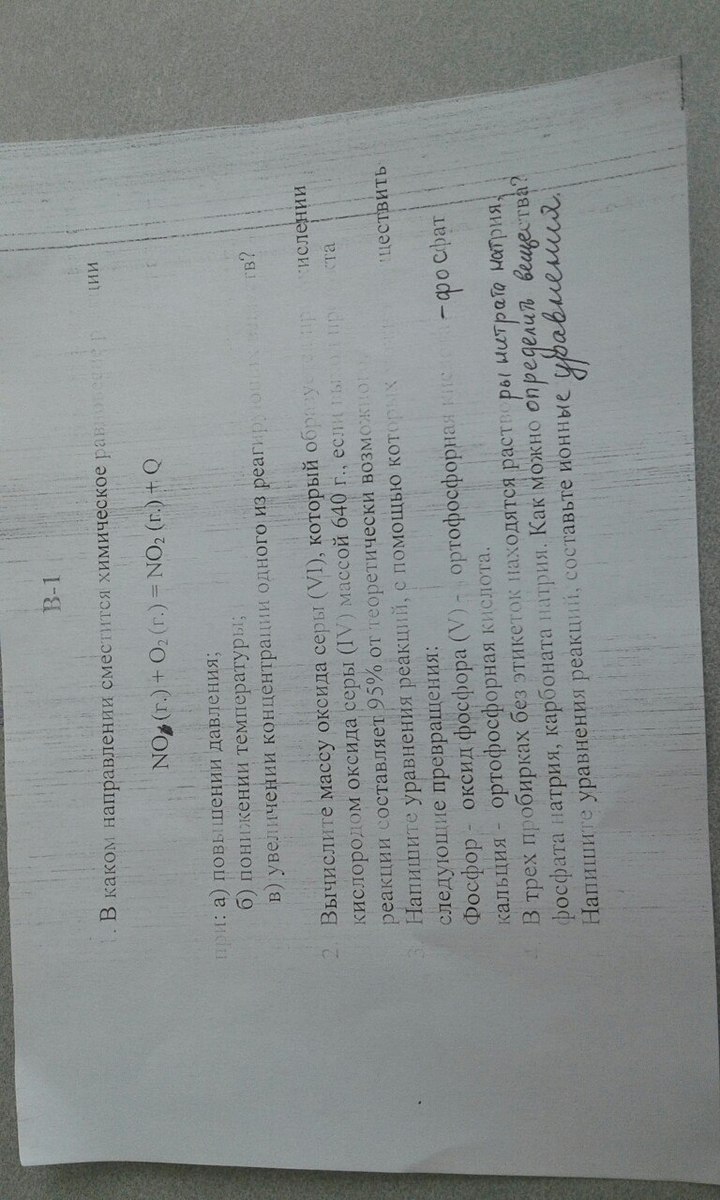 В-1
В каком направлении сместится химическое ции
NO (г.) + O₂ (г.) = NO₂ (г.) + Q
при: а) повышении давления;
б) понижении температуры;
в) увеличении концентрации одного из тв?
2 Вычислите массу оксида серы (VI), который ислении
кислородом оксида серы (IV) массой 640 г., если та
реакции составляет 95% от теоретически
3 Напишите уравнения реакций, с помощью которых ществить
следующие превращения:
Фосфор - оксид фосфора (V) - ортофосфорная - фосфат
кальция - ортофосфорная кислота.
4 В трех пробирках без этикеток находятся растворы нитрата натрия,
фосфата натрия, карбоната натрия. Как можно определить вещества?
Напишите уравнения реакций, составьте ионные уравнения.